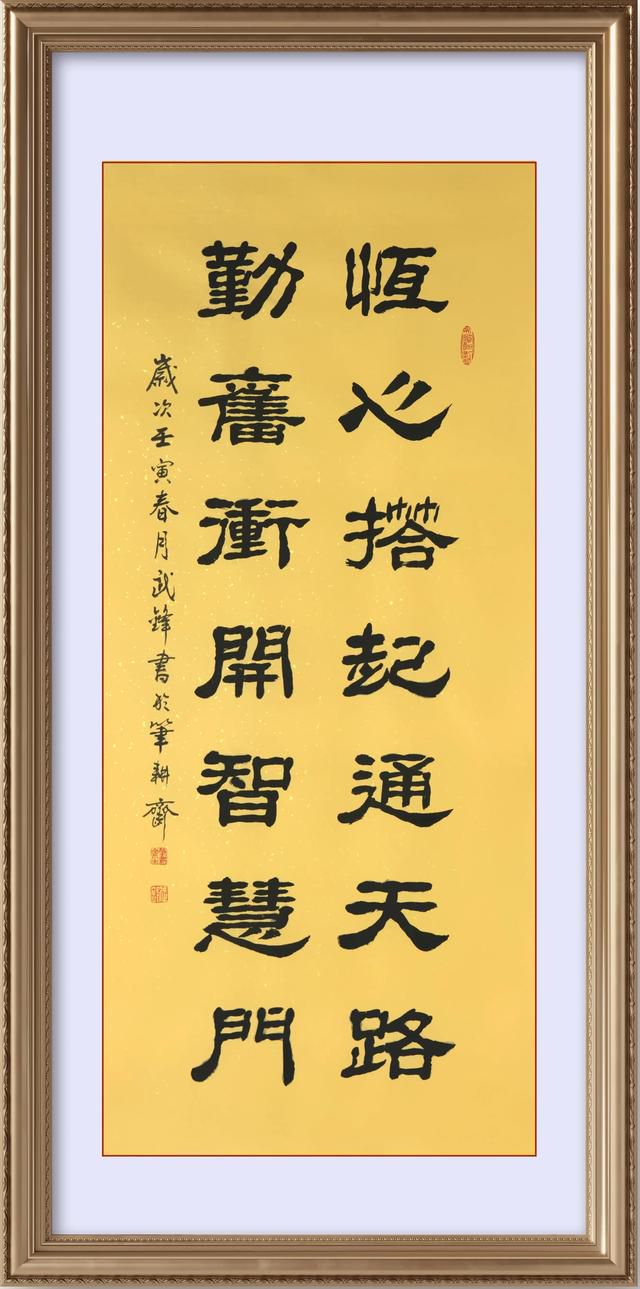 恆心撘起通天路
勤奮衝開智慧門
歲次壬寅春月武鋒書於筆耕齋